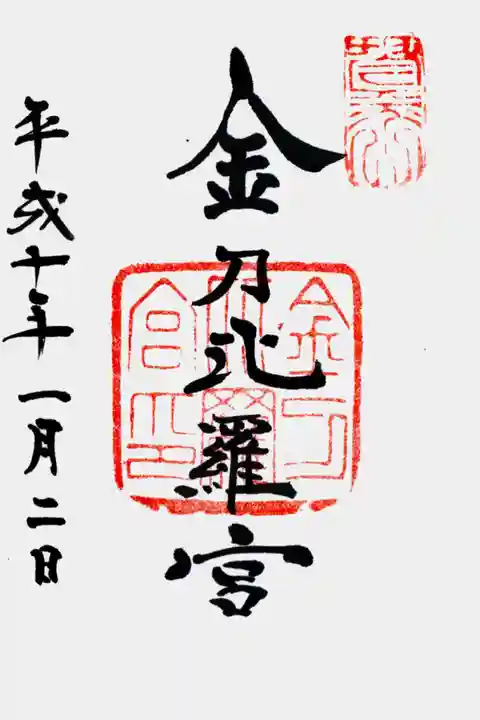 金刀比羅宮
平成十年一月二日
金刀比羅宮印